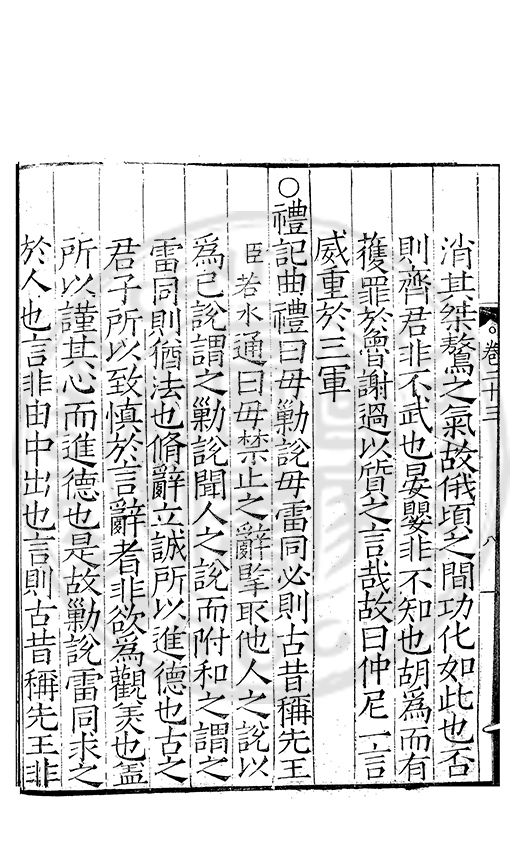 消其桀驁之氣故俄頃之間功化如此也否
則齊君非不武也晏嬰非不知也胡為而有
獲罪於魯謝過以質之言哉故曰仲尼一言
威重於三軍
○禮記曲禮曰毋勦說毋雷同必則古昔稱先王
臣若水通曰毋禁止之辭掔取他人之說以
為己說謂之勦說聞人之說而附和之謂之
雷同則猶法也脩辭立誠所以進德也古之
君子所以致慎於言辭者非欲為觀羙也盖
所以謹其心而進德也是故勦說雷同求之
於人也言非由中出也言則古昔稱先王非
卷二十三
八